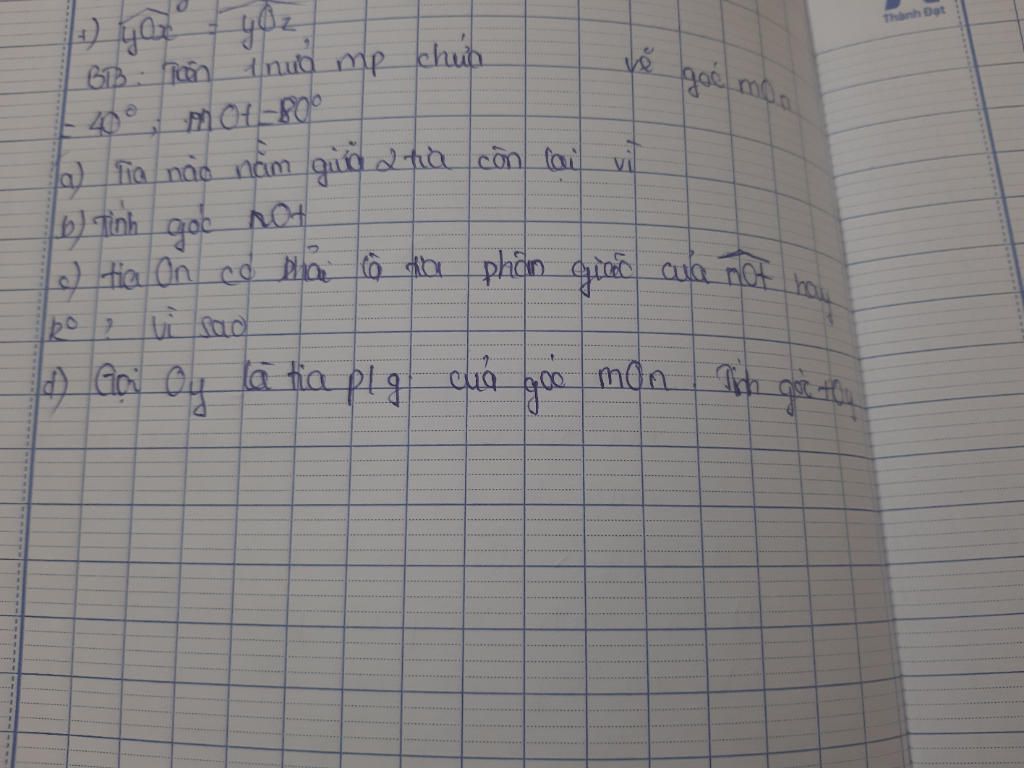 Thành Đạt
+) yOx = yOz
BTB: Trên 1 nửa mp chứa vẽ góc mOn
= 40°; mOt = 80°
a) Tia nào nằm giữa 2 tia còn lại vì
b) Tính góc nOt
c) tia On có phải là tia phân giác của nOt hay
ko? Vì sao
d) Gọi Oy là tia p/g của góc mOn. Tính góc tOy